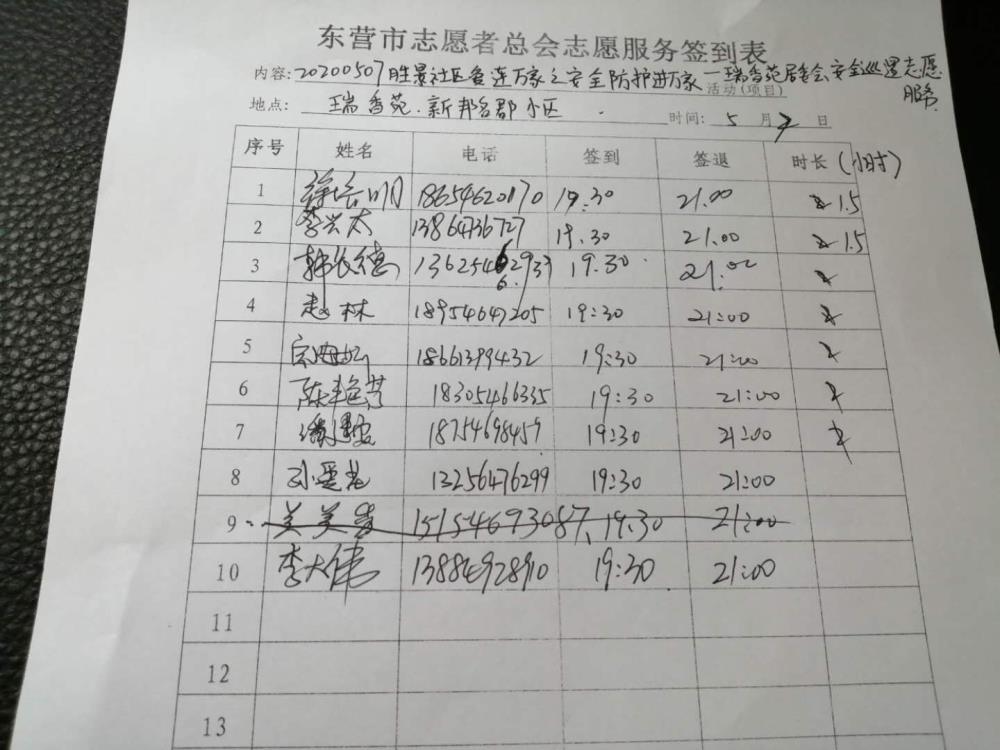 东营市志愿者总会志愿服务签到表
内容：20200507胜景社区鲁连万家之安全防护进万家—瑞香苑居委会安全巡逻志愿
活动(项目) 服务
地点：瑞香苑.新邦名郡小区 时间：5月7日
序号 姓名 电话 签到 签退 时长(小时)
1 徐培明 18654620170 19:30 21.00 1.5
2 李兴太 13864736727 19.30 21.00 1.5
3 韩长德 13625462933 19.30 21:00
6
4 赵林 18954647205 19:30 21:00
5 18661399432 19:30 21:00
6 陈丰艳芹 18305466335 19:30 21:00
7 18754698459 19:30 21:00
8 13256476299 19:30 21:00
9 关美 15154693087 19:30 21:00
10 李大伟 13884928910 19:30 21:00
11
12
13